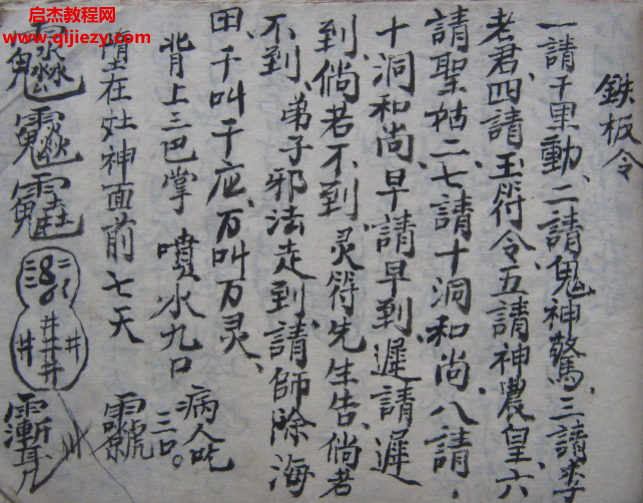 启杰教程网
www.qijiezy.com
鉄板令
一請千里動、二請鬼神驚、三請李
老君、四請玉符令、五請神農皇、六
請聖姑二、七請十洞和尚、八請
十洞和尚、早請早到、遲請遲
到、倘若不到、灵符先生告、倘若
不到、弟子邪法走到、請師除海
田、千叫千应、万叫万灵、
背上三巴掌 噴水九口 病人吃三口。
在灶神面前七天